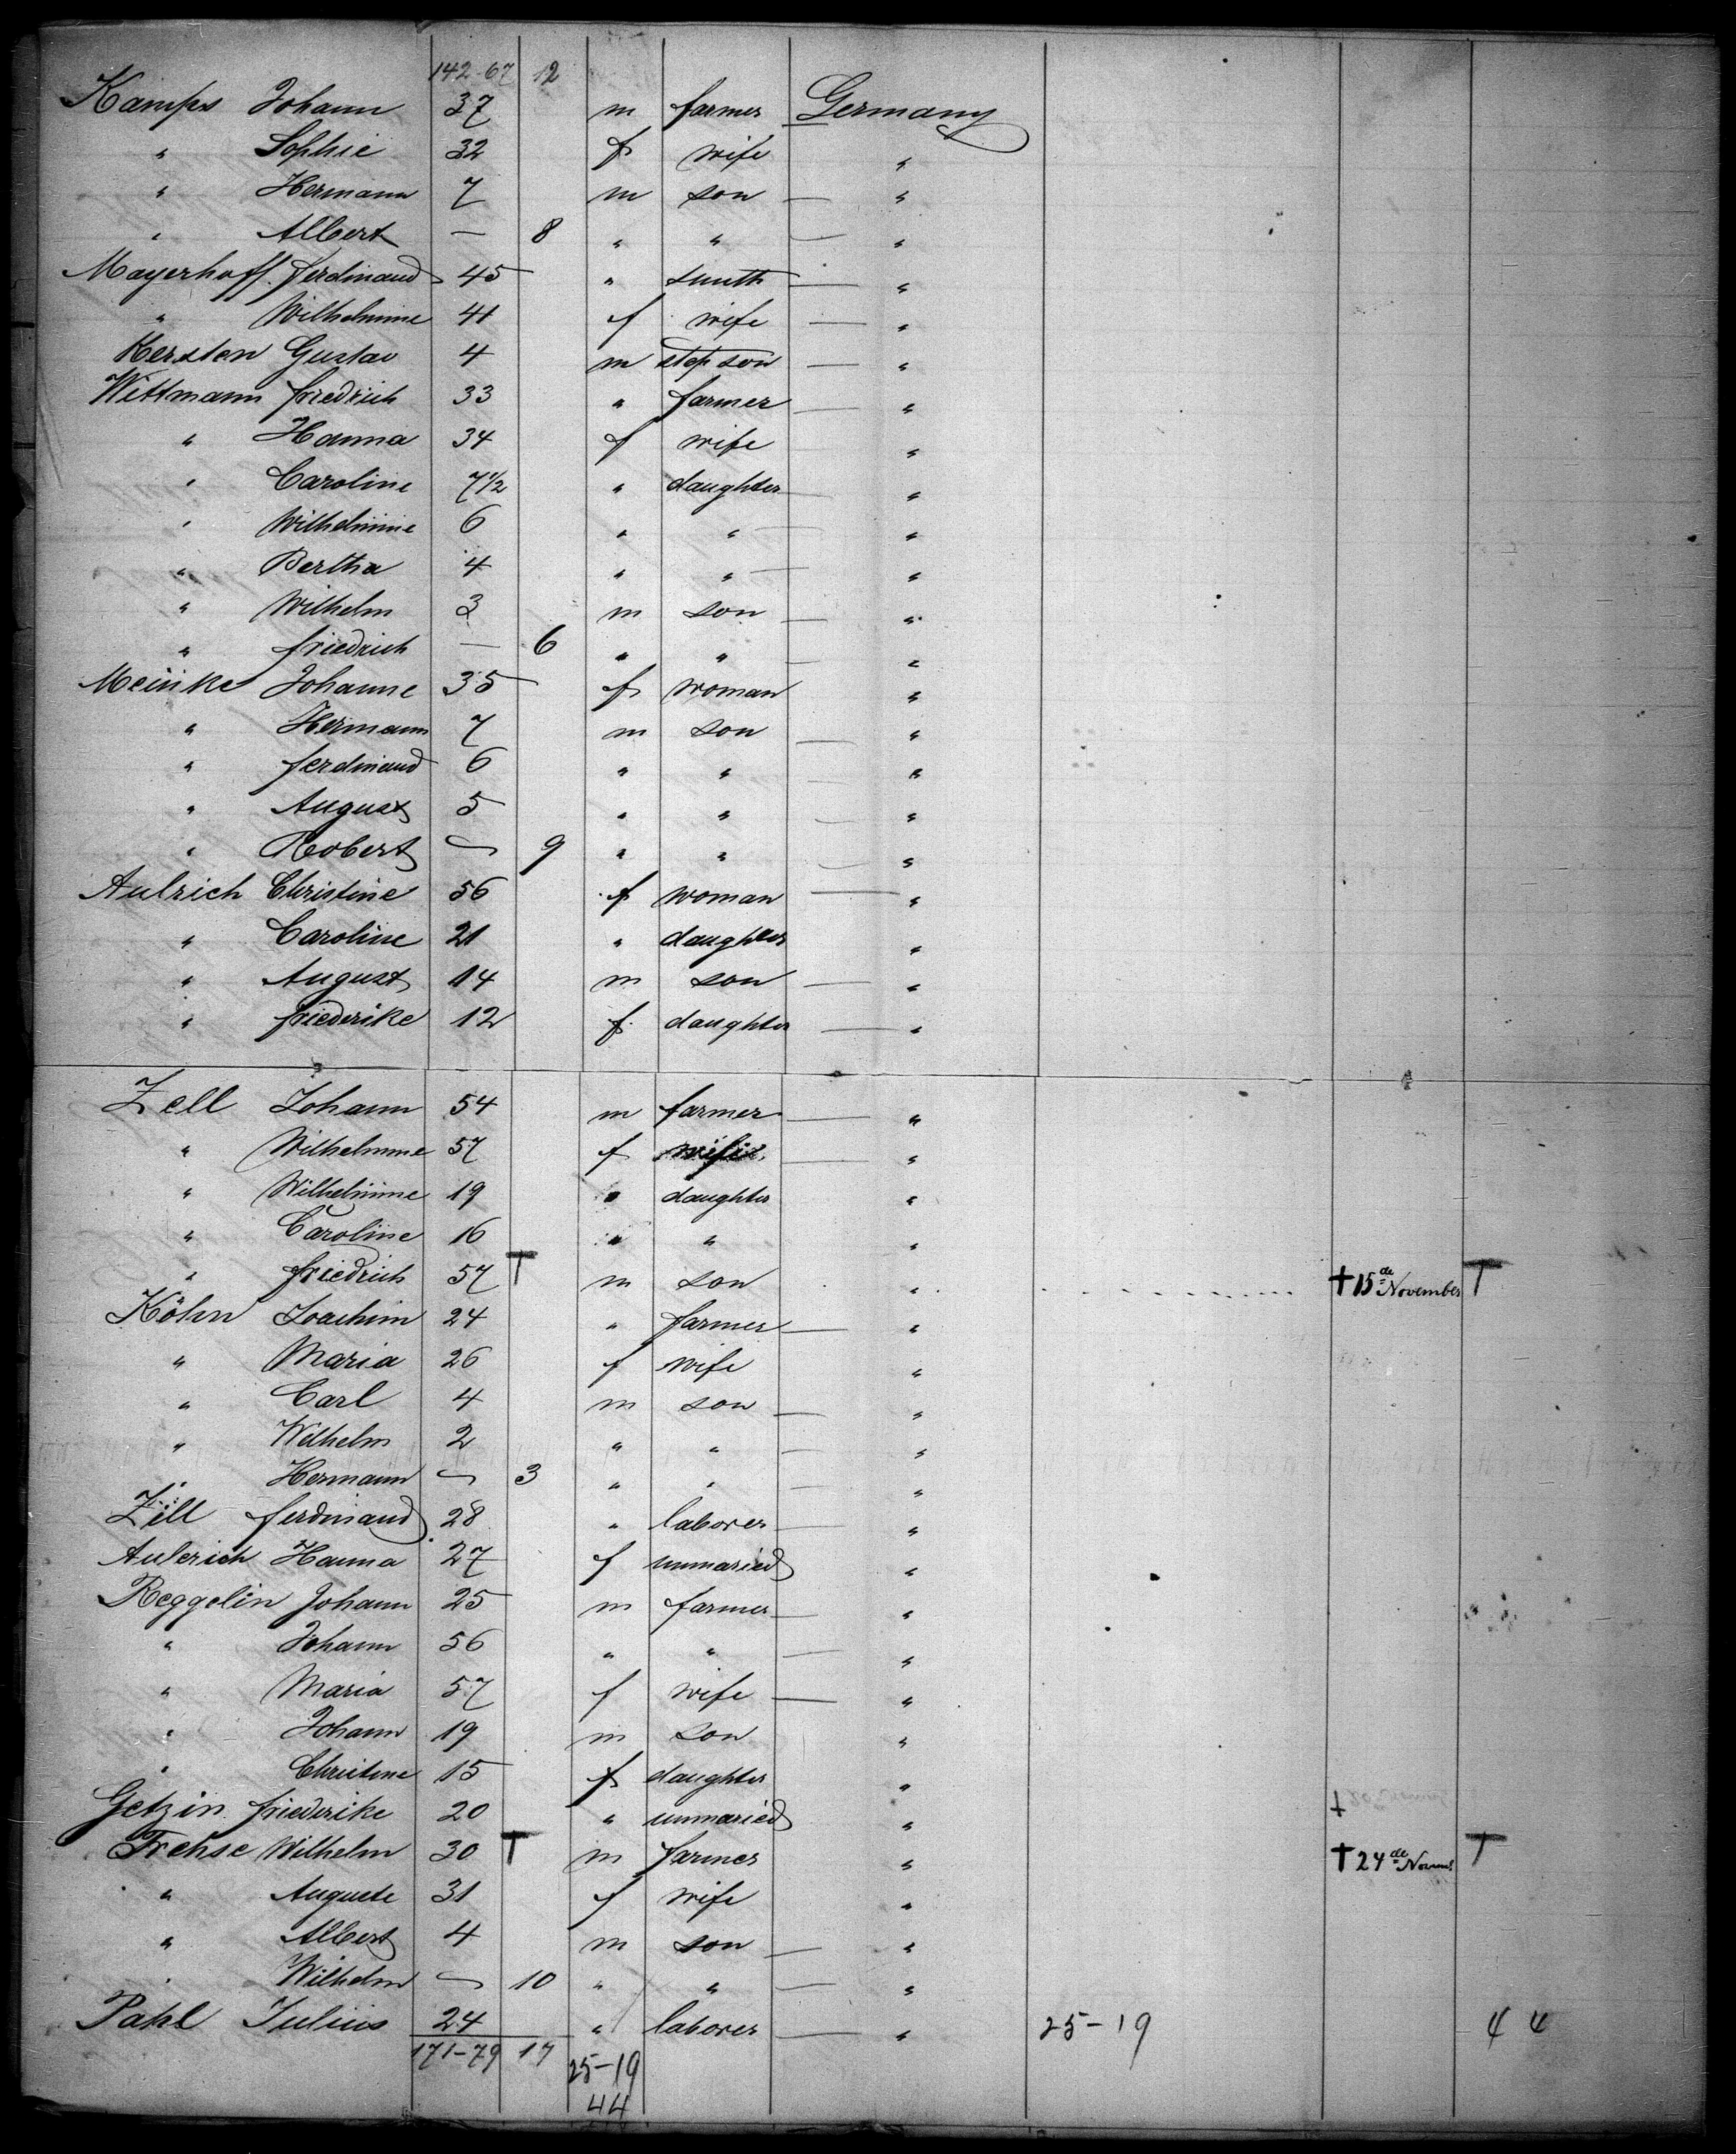 142-67 12
Kamps Johann 37 m farmer Germany
" Sophie 32 f wife "
" Hermann 7 m son — "
" Albert — 8 " " — "
Mayerhoff. Ferdinand 45 " smith — "
" Wilhelmine 41 f wife — "
Kersten Gustav 4 m step son — "
Wittmann Friedrich 33 " farmer — "
" Hanna 34 f wife "
" Caroline 7 1/2 " daughter — "
" Wilhelmine 6 " " — "
" Bertha 4 " " — "
" Wilhelm 3 m son — "
" Friedrich — 6 " " — "
Meinke Johanne 35 f woman "
" Hermann 7 m son — "
" Ferdinand 6 " " — "
" August 5 " " — "
" Robert — 9 " " — "
Aulrich Christine 56 f woman — "
" Caroline 21 " daughter "
" August 14 m son — "
" Friederike 12 f. daughter — "
Zell Johann 54 m farmer — "
" Wilhelmine 57 f wife — "
" Wilhelmine 19 " daughter "
" Caroline 16 " " "
" Friedrich 57 T m son " † 15de November T
Köhn Joachim 24 " farmer — "
" Maria 26 f wife "
" Carl 4 m son — "
" Wilhelm 2 " " — "
" Hermann — 3 " " — "
Zill Ferdinand 28 " laborer — "
Aulerich Hanna 27 f unmaried "
Reggelin Johann 25 m farmer — "
" Johann 56 " " — "
" Maria 57 f wife — "
" Johann 19 m son "
" Christine 15 f daughter "
Getzin Friederike 20 " unmaried " †
Frehse Wilhelm 30 T m farmer " † 24de Novemb. T
" Auguste 31 f wife "
" Albert 4 m son — "
" Wilhelm — 10 " " — "
Pahl Julius 24 " laborer — " 25-19 44
171-79 17 25-19
44